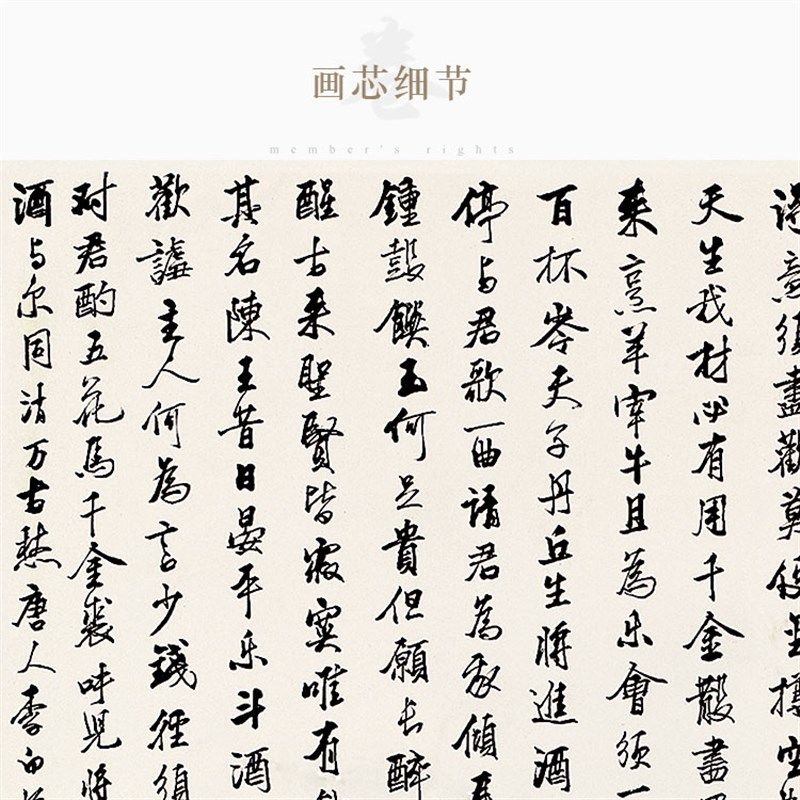 画芯细节
member's rights
意須盡歡莫使金樽空
天生我材必有用千金散盡
来烹羊宰牛且為乐會須一
百杯岑夫子丹丘生將進酒
停与君歌一曲請君為我傾耳
鍾鼓饌玉何足貴但願长醉
醒古来聖賢皆寂寞唯有
其名陳王昔日宴平乐斗酒
歡謔主人何為言少錢徑須
对君酌五花馬千金裘呼兒將
酒与尔同消万古愁唐人李白